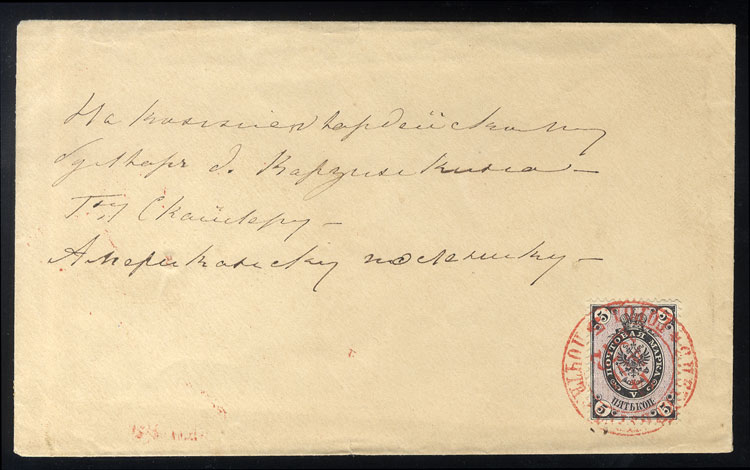 На конногвардейскому
бульвару д. Корзинкина
Г-ну Скайлеру
Американскому посланнику
5 5
ПОЧТОВАЯ МАРКА
V
ПЯТЬ КОП
5 5